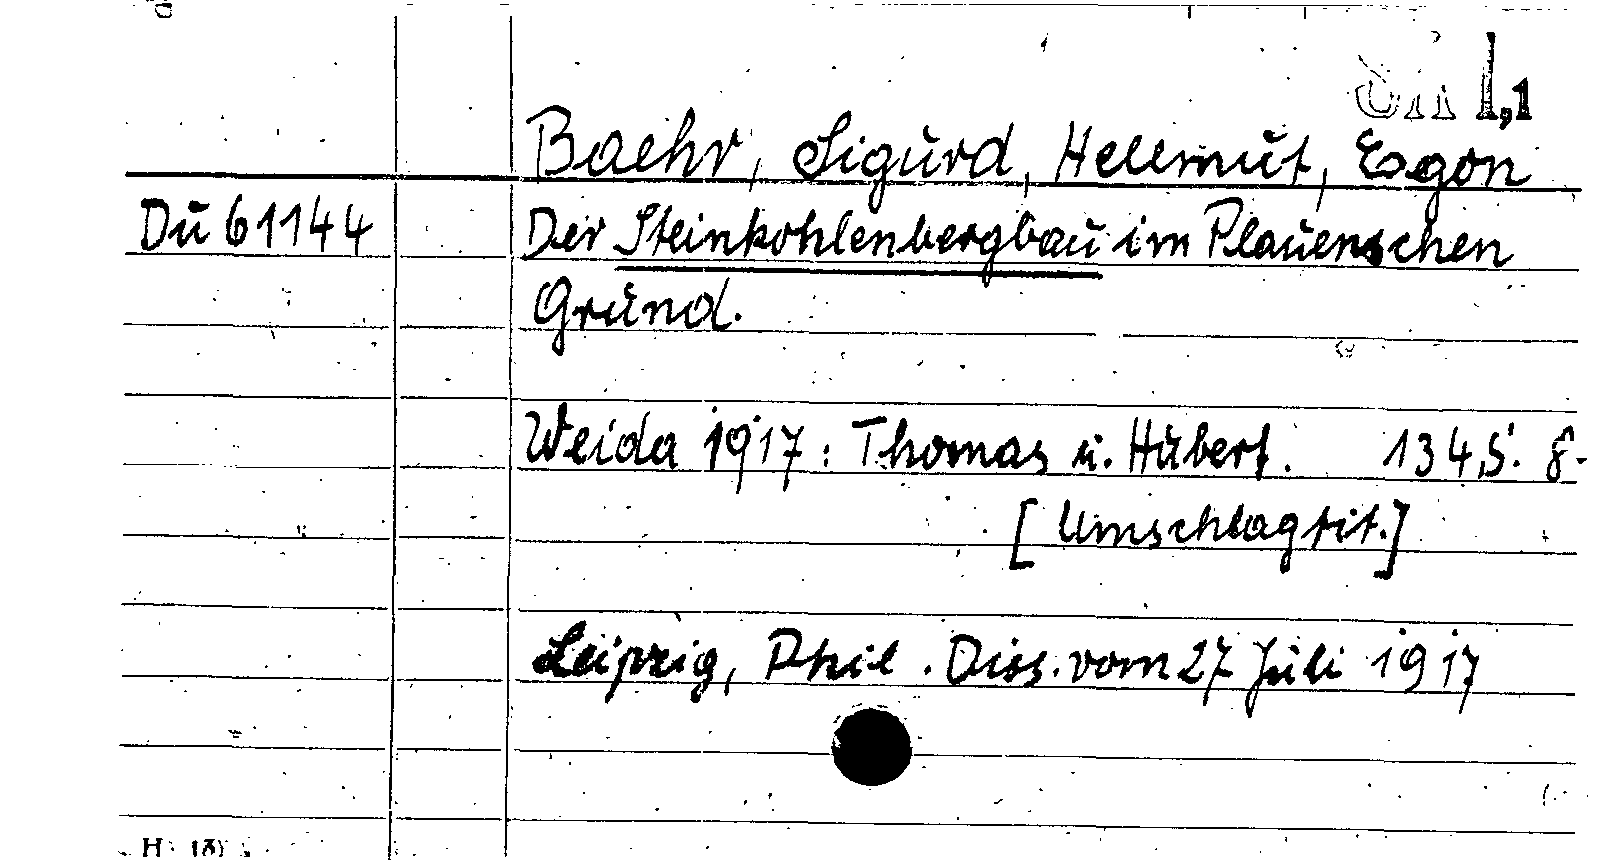 1,1
Baehr, Sigurd, Hellmut, Egon
Du 61144 Der Steinkohlenbergbau im Plauenschen
Grund.
Weida 1917: Thomas u. Hubert. 134 S. 8-
[Umschlagtit.]
Leipzig, Phil. Diss. vom 27 Juli 1917